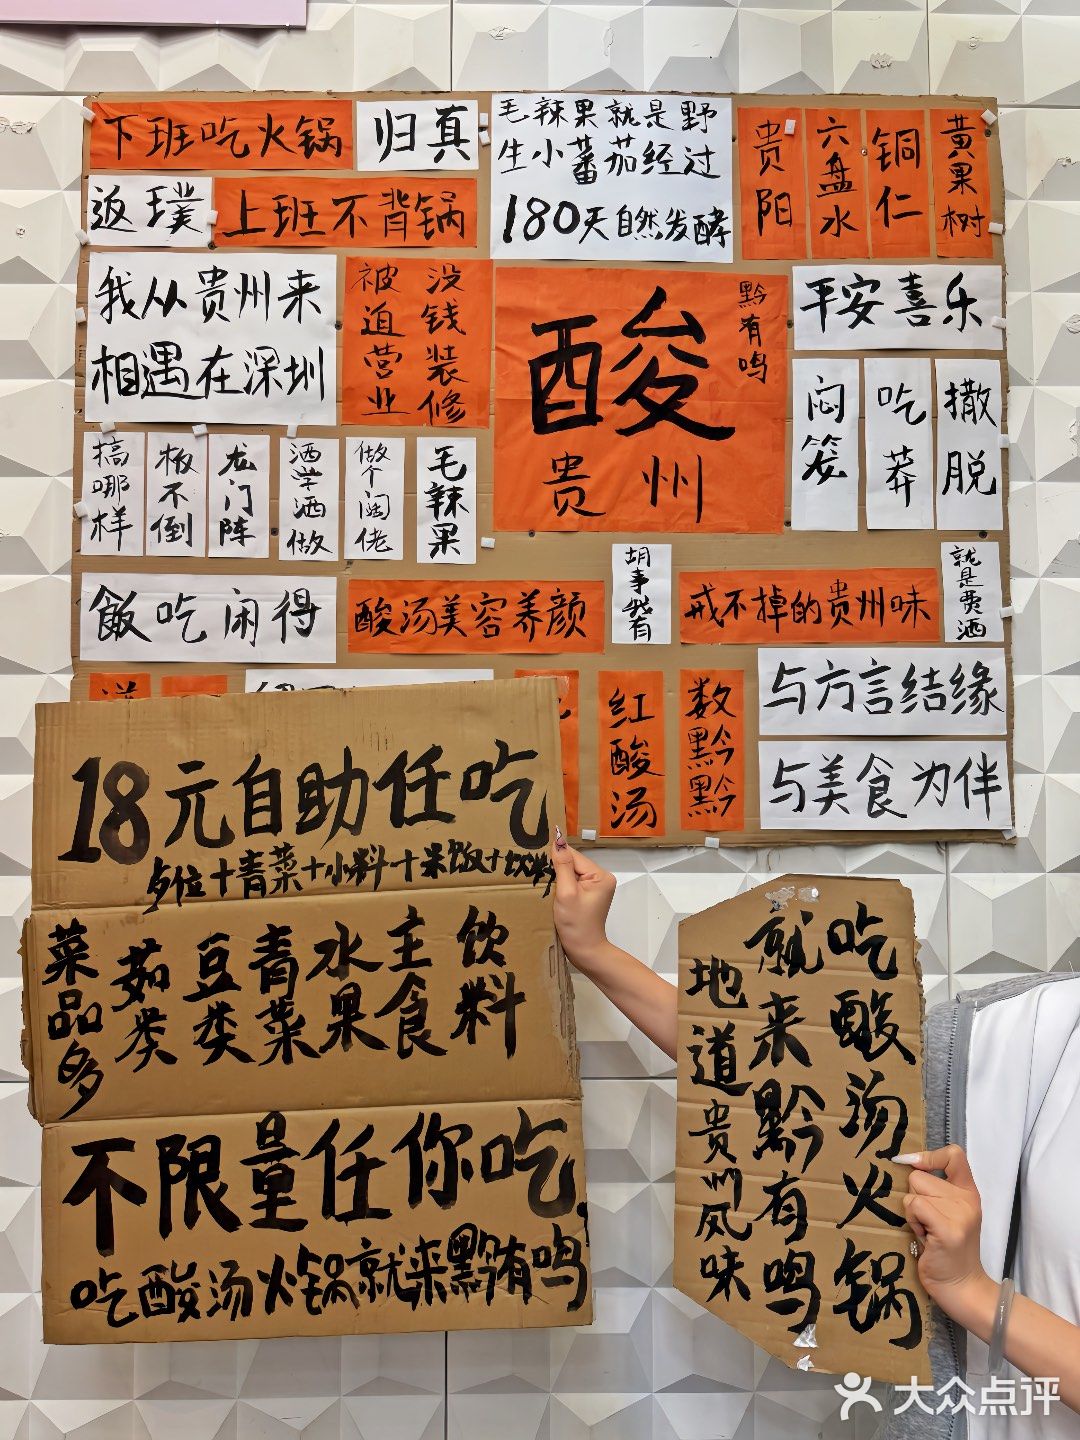 下班吃火锅
归真
返璞
上班不背锅
毛辣果就是野
生小蕃茄经过
180天自然发酵
贵阳
六盘水
铜仁
黄果树
我从贵州来
相遇在深圳
没钱装修
被迫营业
黔有鸣
酸
贵州
平安喜乐
闷笼
吃莽
撒脱
搞哪样
板不倒
龙门阵
洒学洒做
做个阔佬
毛辣果
飯吃闲得
酸汤美容养颜
胡事我有
戒不掉的贵州味
就是费酒
红酸汤
数黔黔
与方言结缘
与美食为伴
18元自助任吃
乡位+青菜+小料+米饭+饮料
菜品多
茹类
豆类
青菜
水果
主食
饮料
不限量任你吃
吃酸汤火锅就来黔有鸣
吃酸汤火锅
就来黔有鸣
地道贵州风味
大众点评